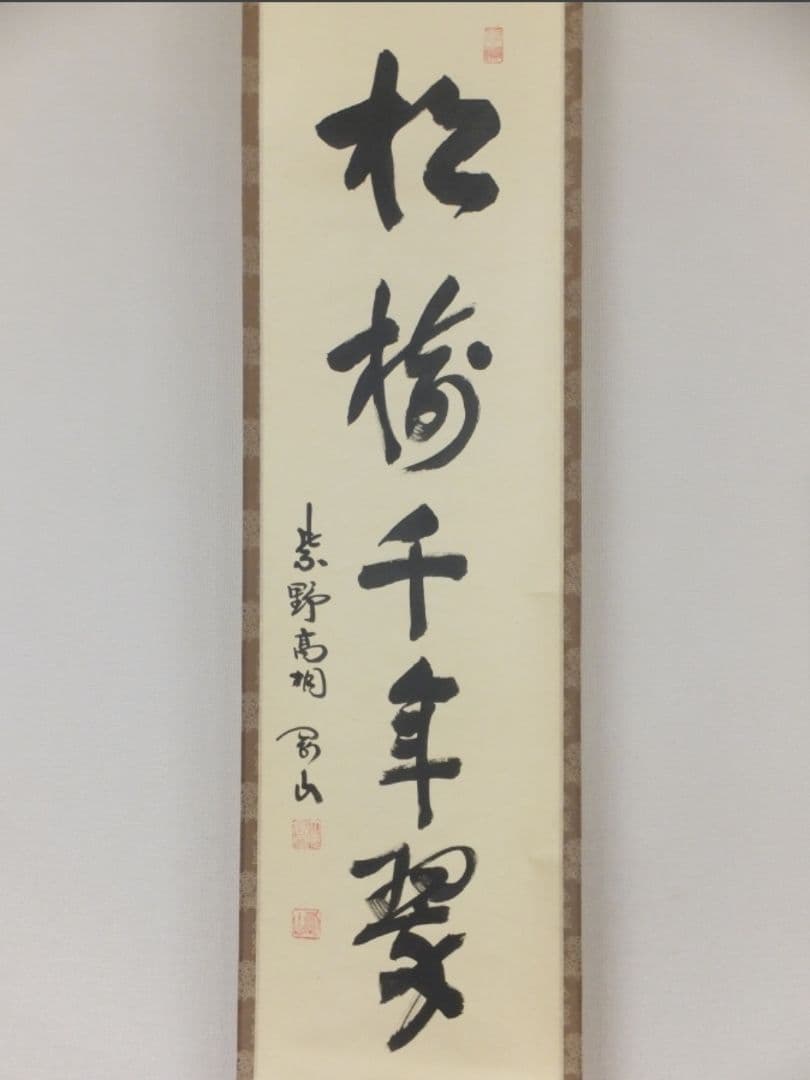 松樹千年翠
紫野高桐 剛山